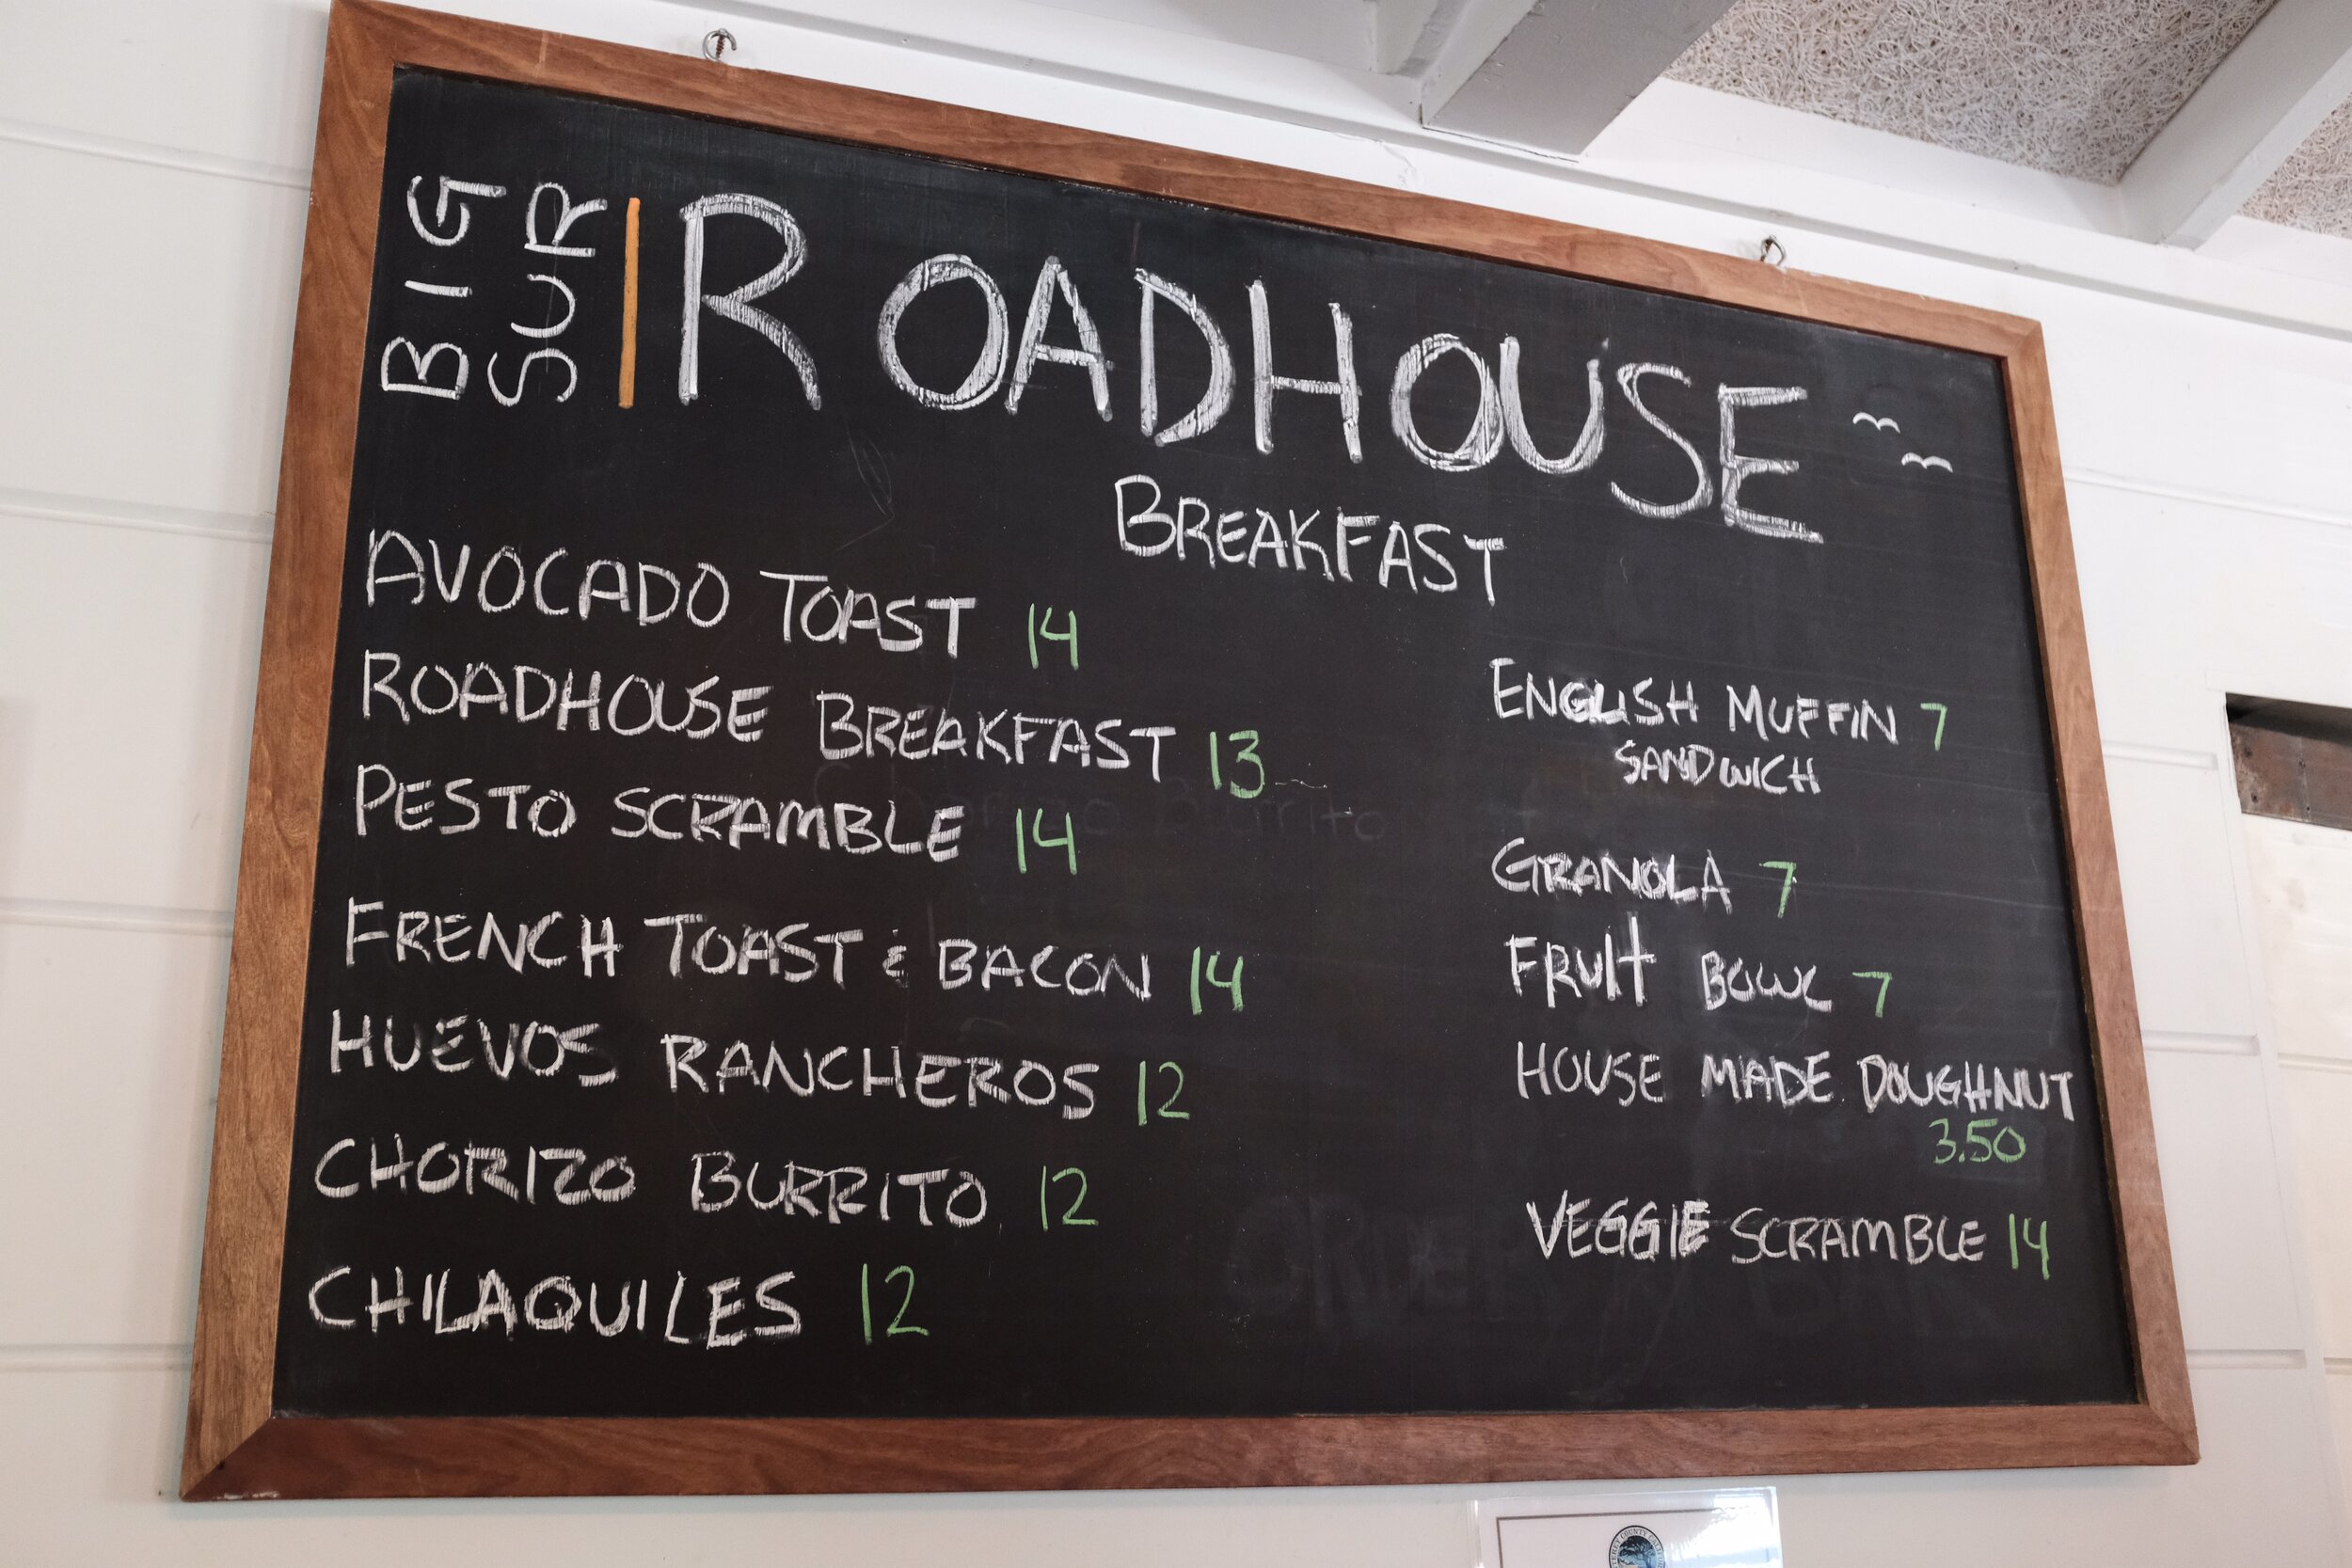 BIG
SUR
ROADHOUSE
BREAKFAST
AVOCADO TOAST 14
ROADHOUSE BREAKFAST 13
PESTO SCRAMBLE 14
FRENCH TOAST & BACON 14
HUEVOS RANCHEROS 12
CHORIZO BURRITO 12
CHILAQUILES 12
ENGLISH MUFFIN 7
SANDWICH
GRANOLA 7
FRUIT BOWL 7
HOUSE MADE DOUGHNUT
3.50
VEGGIE SCRAMBLE 14